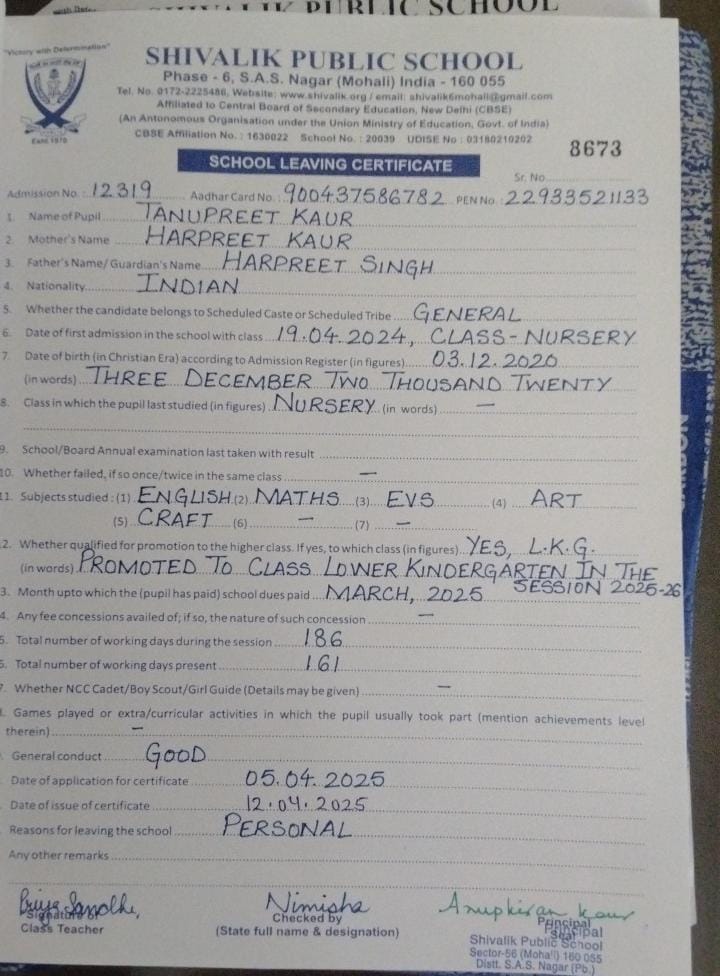 PUBLIC SCHOOL
"Victory with Determination"
SHIVALIK PUBLIC SCHOOL
Phase - 6, S.A.S. Nagar (Mohali) India - 160 055
Tel. No. 0172-2225486, Website: www.shivalik.org / email: shivalik6mohali@gmail.com
Affiliated to Central Board of Secondary Education, New Delhi (CBSE)
(An Autonomous Organisation under the Union Ministry of Education, Govt. of India)
CBSE Affiliation No. : 1630022 School No. : 20039 UDISE No : 03180210202
Estd. 1970
8673
SCHOOL LEAVING CERTIFICATE
Sr. No.
Admission No. : 12319 Aadhar Card No. : 900437586782 PEN No. : 22933521133
1. Name of Pupil TANUPREET KAUR
2. Mother's Name HARPREET KAUR
3. Father's Name/ Guardian's Name HARPREET SINGH
4. Nationality INDIAN
5. Whether the candidate belongs to Scheduled Caste or Scheduled Tribe GENERAL
6. Date of first admission in the school with class 19.04.2024, CLASS-NURSERY
7. Date of birth (in Christian Era) according to Admission Register (in figures) 03.12.2020
(in words) THREE DECEMBER TWO THOUSAND TWENTY
8. Class in which the pupil last studied (in figures) NURSERY (in words) —
9. School/Board Annual examination last taken with result
10. Whether failed, if so once/twice in the same class —
11. Subjects studied : (1) ENGLISH (2) MATHS (3) EVS (4) ART
(5) CRAFT (6) — (7) —
2. Whether qualified for promotion to the higher class. If yes, to which class (in figures) YES, L.K.G.
(in words) PROMOTED TO CLASS LOWER KINDERGARTEN IN THE
SESSION 2025-26
3. Month upto which the (pupil has paid) school dues paid MARCH, 2025
4. Any fee concessions availed of; if so, the nature of such concession —
5. Total number of working days during the session 186
6. Total number of working days present 161
7. Whether NCC Cadet/Boy Scout/Girl Guide (Details may be given) —
Games played or extra/curricular activities in which the pupil usually took part (mention achievements level
therein) —
General conduct GOOD
Date of application for certificate 05.04.2025
Date of issue of certificate 12.04.2025
Reasons for leaving the school PERSONAL
Any other remarks
Priya Nimisha Anupkiran Kaur
Signature of
Class Teacher
Checked by
(State full name & designation)
Principal
Seal
Principal
Shivalik Public School
Sector-56 (Mohali) 160 055
Distt. S.A.S. Nagar (Pb.)